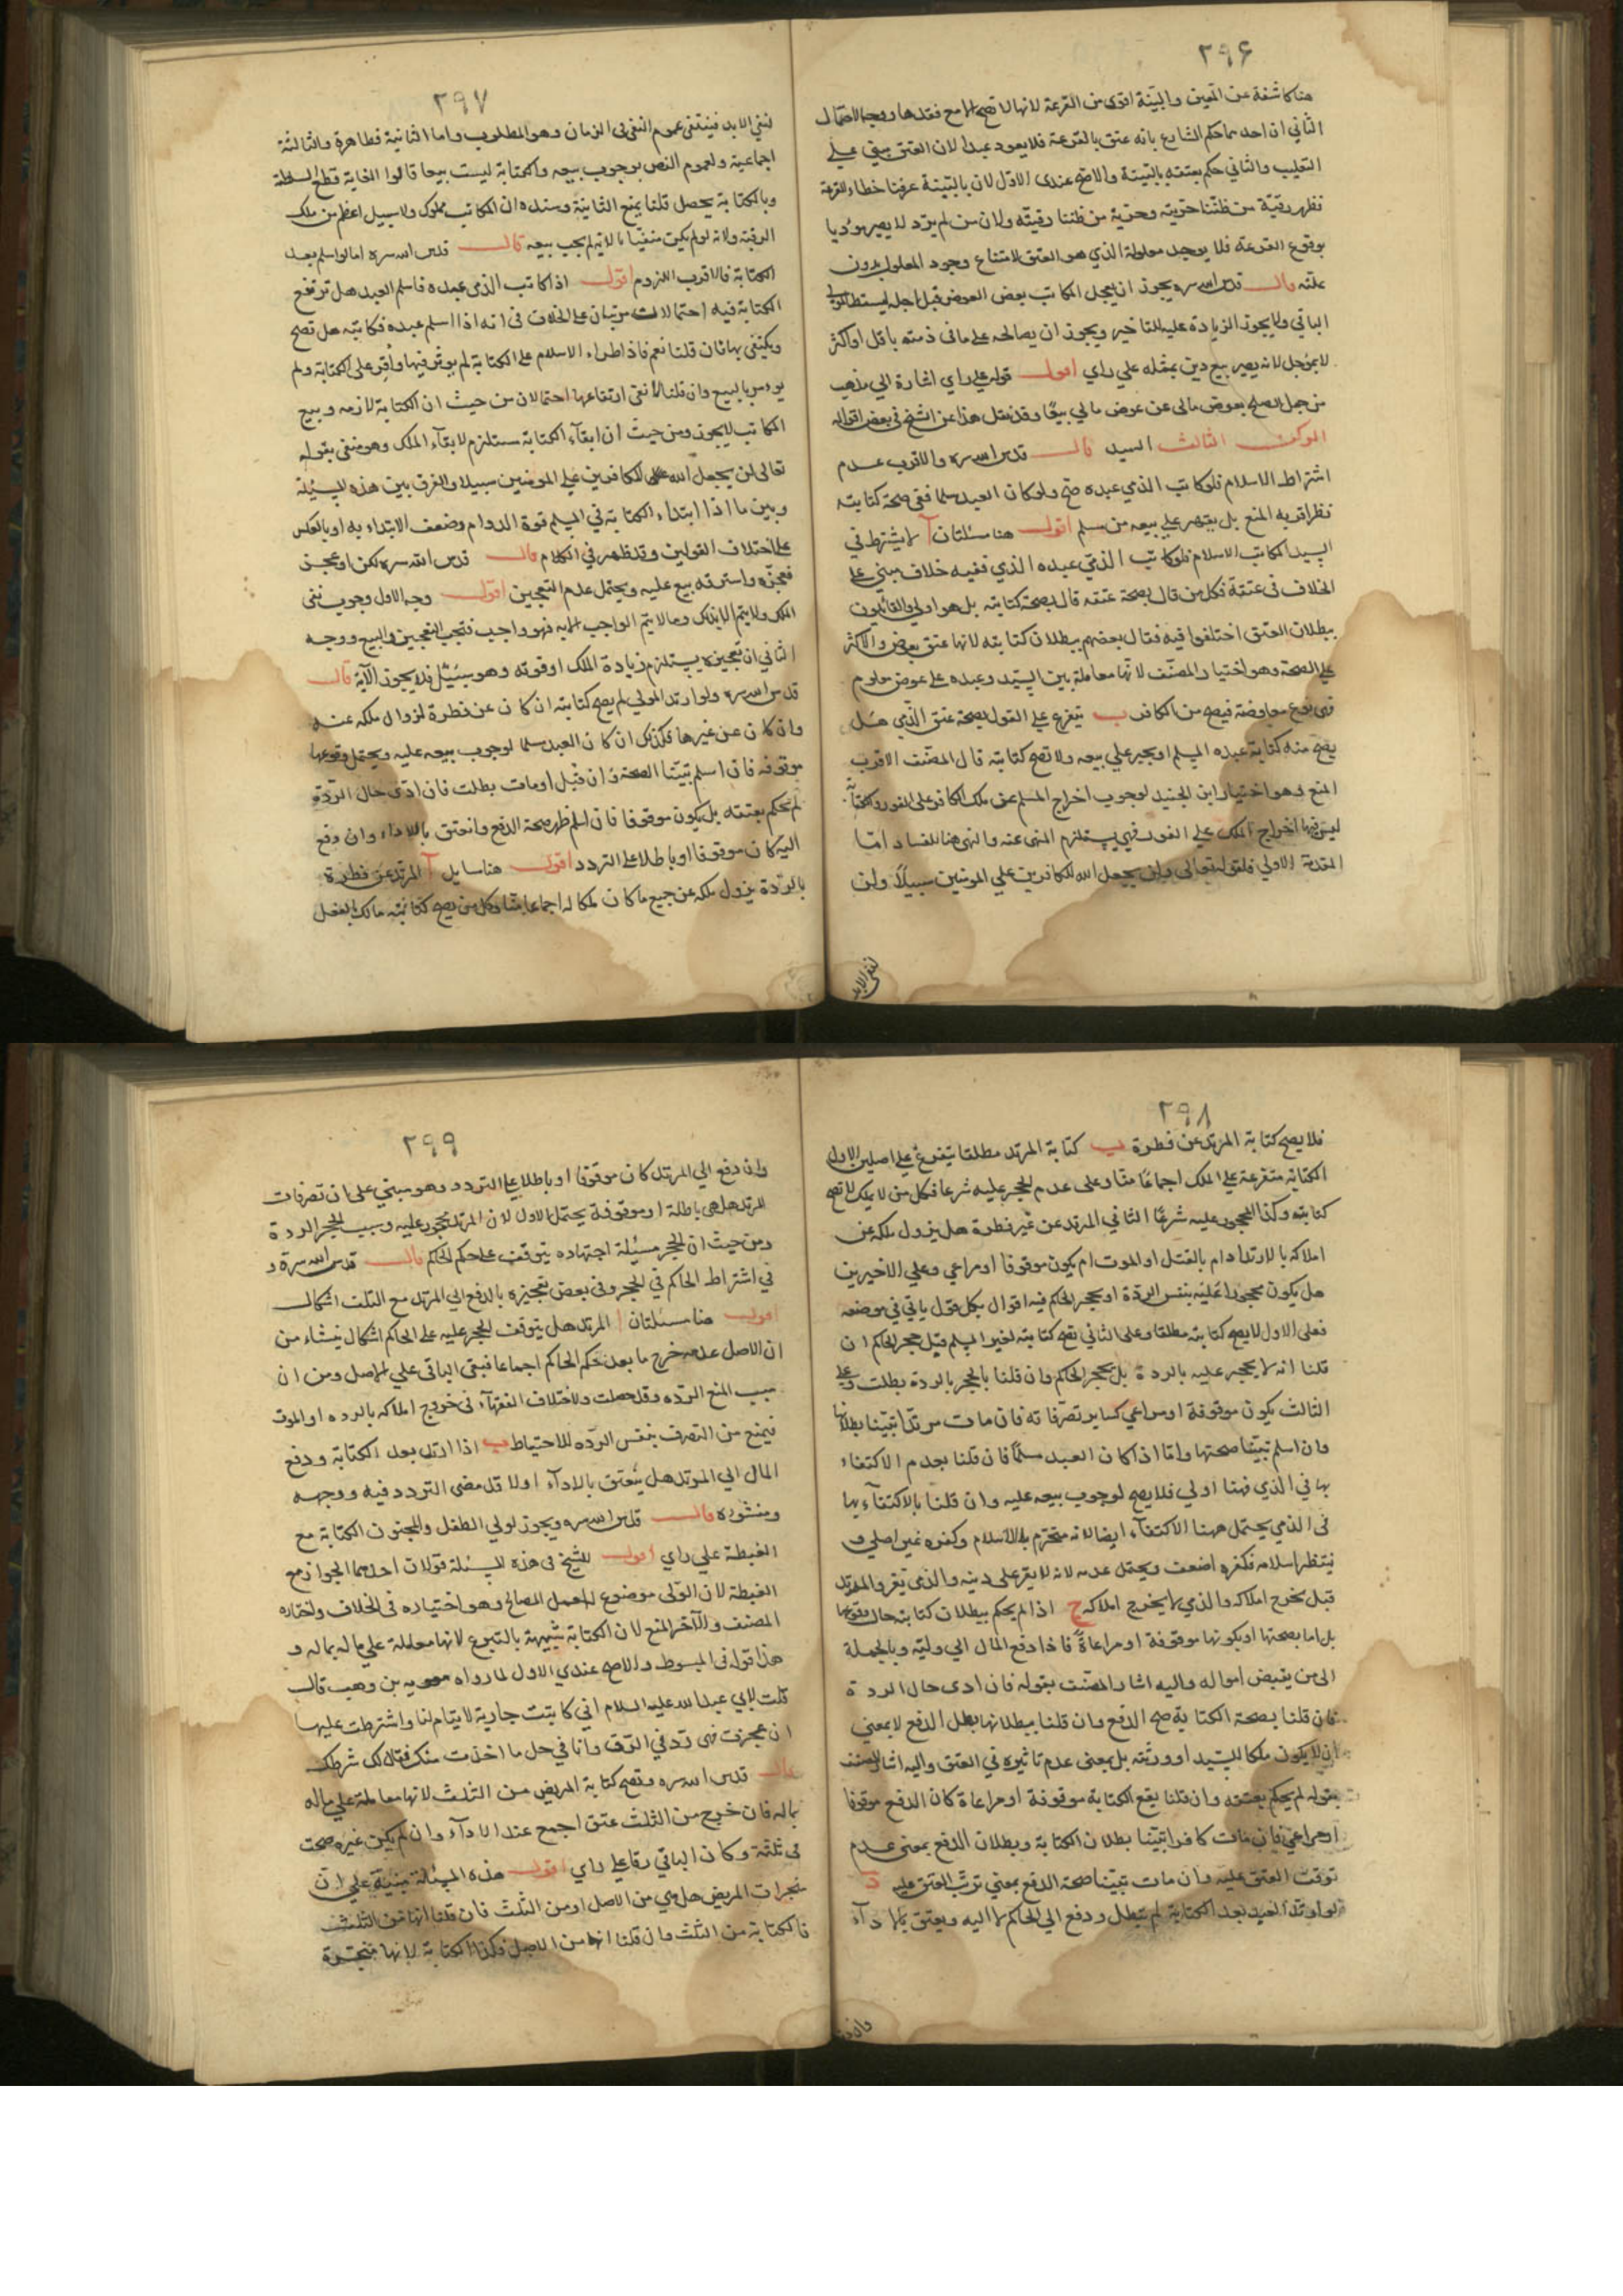 ٢٩۶
هنا كاشفة عن المعين والبيّنة اقوى من القرعة لانها لا تصح الا مع فقدها ووجه الاحتمال
الثاني ان احدهما حكم الشارع بانه عتق بالقرعة فلا يعود عبدا لان العتق مبنى علي
التغليب والثاني حكم بعتقه بالبيّنة والاصح عندى الاوّل لان بالبيّنة عرفنا خطاء القرعة
فظهر رقيّة من ظننّا حرّيته وحرّية من ظننا رقيّته ولان من لم يرد لا يصير مؤديا
بوقوع القرعة فلا يوجد معلولة الذي هو العتق لامتناع وجود المعلول بدون
علته قال قدس الله سره يجوز ان يعجل المكاتب بعض العوض قبل اجله ليسقط المولى
الباقي ولا يجوز الزيادة عليه للتاخير ويجوز ان يصالحه على ما فى ذمته باقل او اكثر
لا بمؤجل لانه يصير بيع دين بمثله علي راي اقول قوله على راي اشارة الي مذهب
من جعل الصلح بعوض مالى عن عوض مالي بيعًا وقد نقل هذا عن الشيخ فى بعض اقواله
الركن الثالث السيد قال قدس الله سره والاقرب عدم
اشتراط الاسلام فلو كاتب الذمي عبده صح ولو كان العبد مسلما ففى صحة كتابته
نظر اقربه المنع بل يقهر على بيعه من مسلم اقول هنا مسئلتان آ لا يشترط في
السيد المكاتب الاسلام فلو كاتب الذمّي عبده الذمي ففيه خلاف مبني على
الخلاف فى عتقه فكل من قال بصحة عتقه قال بصحة كتابته بل هو اولى والقائلون
ببطلان العتق اختلفوا فيه فقال بعضهم ببطلان كتابته لانها عتق بعوض والاكثر
على الصحة وهو اختيار المصنّف لانّها معاملة بين السيّد وعبده على عوض معلوم
فهى نوع معاوضة فيصح من الكافر ب تفرع على القول بصحة عتق الذّمي هل
يصح منه كتابة عبده المسلم او يجبر علي بيعه ولا تصح كتابته قال المصنّف الاقرب
المنع وهو اختيار ابن الجنيد لوجوب اخراج المسلم عن ملك الكافر على الفور والكتابة
ليس فيها اخراج الملك على الفور فهي يستلزم المنهى عنه والنهى هنا للفساد امّا
المقدمة الاولي فلقوله تعالى ولن يجعل الله للكافرين علي المومنين سبيلاً ولن
لنفى الابد
٢٩٧
لنفي الابد فينتفى عموم النفى فى الزمان وهو المطلوب واما الثانية فظاهرة والثالثة
اجماعية ولعموم النص بوجوب بيعه والكتابة ليست بيعا قالوا الغاية قطع السلطنة
وبالكتابة يحصل قلنا يمنع الثانية وسنده ان المكاتب مملوك ولا سبيل اعظم من ملك
الرقبة ولانه لو لم يكن منفيّا بالاية لم يجب بيعه قال قدس الله سره اما لو اسلم بعد
الكتابة فالاقرب اللزوم اقول اذا كاتب الذمى عبده فاسلم العبد هل ترتفع
الكتابة فيه احتمالات مرتبان على الخلاف فى انه اذا اسلم عبده فكاتبه هل تصح
ويكتفى بها فان قلنا نعم فاذا طراء الاسلام على الكتابة لم يوثر فيها واُقِر على الكتابة ولم
يومر بالبيع وان قلنا لا ففى ارتفاعها احتمالان من حيث ان الكتابة لازمه وبيع
المكاتب لا يجوز ومن حيث ان ابقآء الكتابة مستلزم لابقآء الملك وهو منفى بقوله
تعالى لن يجعل الله للكافرين على المومنين سبيلا والفرق بين هذه المسئلة
وبين ما اذا ابتداء الكتابة في المسلم قوة الدوام وضعف الابتداء به او بالعكس
على اختلاف القولين وقد ظهر فى الكلام قال قدس الله سره لكن لو عجز
فعجزه واسترقه بيع عليه ويحتمل عدم التعجيز اقول وجه الاول وجوب نفى
الملك ولا يتم الا بذلك وما لا يتم الواجب الا به فهو واجب فتجب التعجيز والبيع ووجه
الثاني ان تعجيزه يستلزم زيادة الملك او قوته وهو سبيل فلا يجوز الآية قال
قدس الله سره ولو ارتد المولى لم يصح كتابته ان كان عن فطرة لزوال ملكه عنه
وان كان عن غيرها فكذلك ان كان العبد مسلما لوجوب بيعه عليه ويحتمل وقوعها
موقوفه فان اسلم تبيّنا الصحة وان قتل او مات بطلت فان ادّى حال الردّة
لم يحكم بعتقه بل يكون موقوفا فان اسلم ظهر صحة الدفع وانعتق بالاداء وان دفع
اليه كان موقوفا او باطلا على التردد اقول هنا مسايل آ المرتد عن فطرة
بالردّة يزول ملكه عن جميع ما كان ملكا له اجماعا منّا وكل من يصح كتابته مالك بالفعل
٢٩٨
فلا يصح كتابة المرتد عن فطرة ب كتابة المرتد مطلقا يتفرع على اصلين الاول
الكتابة متفرعة على الملك اجماعًا منّا وعلى عدم الحجر عليه شرعا فكل من لا يملك لا تصح
كتابته وكذا المحجور عليه شرعًا الثاني المرتد عن غير فطرة هل يزول ملكه عن
املاكه بالارتداد ام بالقتل او الموت ام يكون موقوفا او مراعي وعلي الاخيرين
هل يكون محجورا عليه بنفس الردّة او بحجر الحاكم فيه اقوال بكل قول ياتي في موضعه
فعلى الاول لا يصح كتابته مطلقا وعلى الثاني تصح كتابته لغير المسلم قبل حجر الحاكم ان
قلنا انه لا يحجر عليه بالردة بل بحجر الحاكم وان قلنا بالحجر بالردة بطلت وعلى
الثالث يكون موقوفة او مراعي كساير تصرّفاته فان مات مرتدّا تبيّنا بطلانها
وان اسلم تبيّنا صحتها وامّا اذا كان العبد مسلمًا فان قلنا بعدم الاكتفاء
بها في الذمي فهنا اولي فلا يصح لوجوب بيعه عليه وان قلنا بالاكتفآء بها
فى الذمي يحتمل ههنا الاكتفآء ايضا لانه متحرم بالاسلام وكفره غير اصلي و
ينتظر اسلامه فكفره اضعف ويحتمل عدمه لانه لا يقر على دينه والذمى يقر والمرتد
قيل يخرج املاكه والذمي لا يخرج املاكه ج اذا لم يحكم ببطلان كتابته حال وقوعها
بل اما بصحتها او بكونها موقوفة او مراعاةً فاذا دفع المال الي وليّه وبالجملة
الى من يقبض امواله واليه اشار المصنّف بقوله فان ادى حال الردة
فان قلنا بصحة الكتابة صح الدفع وان قلنا ببطلانها بطل الدفع لا بمعنى
ان لا يكون ملكا للسيّد او ورثته بل بمعنى عدم تاثيره في العتق واليه اشار المصنف
بقوله لم يحكم بعتقه وان قلنا يقع الكتابة موقوفة او مراعاة كان الدفع موقوفا
او مراعى فان مات كافرا تبيّنا بطلان الكتابة وبطلان الدفع بمعنى عدم
توقف العتق عليه وان مات تبيّنا صحة الدفع بمعني ترتّب العتق عليه د
لو ارتدّ العبد بعد الكتابة لم تبطل ودفع الى الحاكم لا اليه ويعتق بالادآء
وان دفع
٢٩٩
وان دفع الي المرتد كان موقوفا او باطلا على التردد وهو مبني على ان تصرفات
المرتد هل هى باطلة او موقوفة يحتمل الاول لان المرتد محجور عليه وسبب الحجر الردة
ومن حيث ان الحجر مسئلة اجتهاده يتوقف على حكم الحاكم قال قدس الله سره و
في اشتراط الحاكم في الحجر وفى بعض تنجيزه بالدفع الي المرتد مع التلف اشكال
اقول هنا مسئلتان ا المرتد هل يتوقف الحجر عليه على الحاكم اشكال ينشاء من
ان الاصل عدمه خرج ما بعد حكم الحاكم اجماعا فيبقى الباقى علي الاصل ومن ان
سبب المنع الردّه وقد حصلت ولاختلاف الفقهآء فى خروج املاكه بالرده او الموت
فيمنع من التصرف بنفس الردّه للاحتياط ب اذا ارتد بعد الكتابة ودفع
المال الي المرتد هل يُعتق بالادآء اولا قد مضى التردد فيه ووجهه
ومنشؤه قال قدس الله سره ويجوز لولي الطفل والمجنون الكتابة مع
الغبطة علي راي اقول للشيخ فى هذه المسئلة قولان احدهما الجواز مع
الغبطة لان الولى موضوع لعمل المصالح وهو اختياره فى الخلاف واختاره
المصنف والآخر المنع لان الكتابة شبيهة بالتبرع لانها معاملة على ماله بماله و
هذا قوله فى المبسوط والاصح عندي الاول لما رواه معويه بن وهب قال
قلت لابي عبد الله عليه السلام اني كاتبت جارية لايتام لنا واشترطت عليها
ان عجزت فهى ردّ في الرّق وانا في حل ما اخذت منك فقال لك شرطك
قال قدس الله سره وتصح كتابة المريض من الثلث لانها معاملة علي ماله
بماله فان خرج من الثلث عتق اجمع عند الادآء وان لم يكن غيره صحت
فى ثلثه وكان الباقي رقا على راي اقول هذه المسئلة مبنيّة على ان
منجزات المريض هل هي من الاصل او من الثلث فان قلنا انها من الثلث
فالكتابة من الثلث وان قلنا انها من الاصل فكذا الكتابة لانها منجّزة